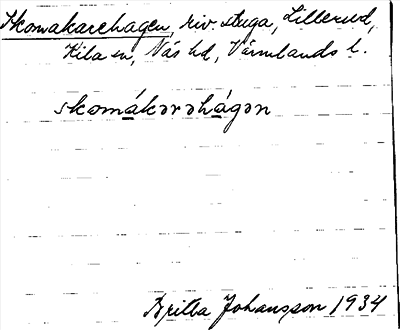 Skomakarehagen, riv. stuga, Lillerud,
Kila sn, Näs hd, Värmlands l.
skomákərəhágən
Britta Johansson 1934